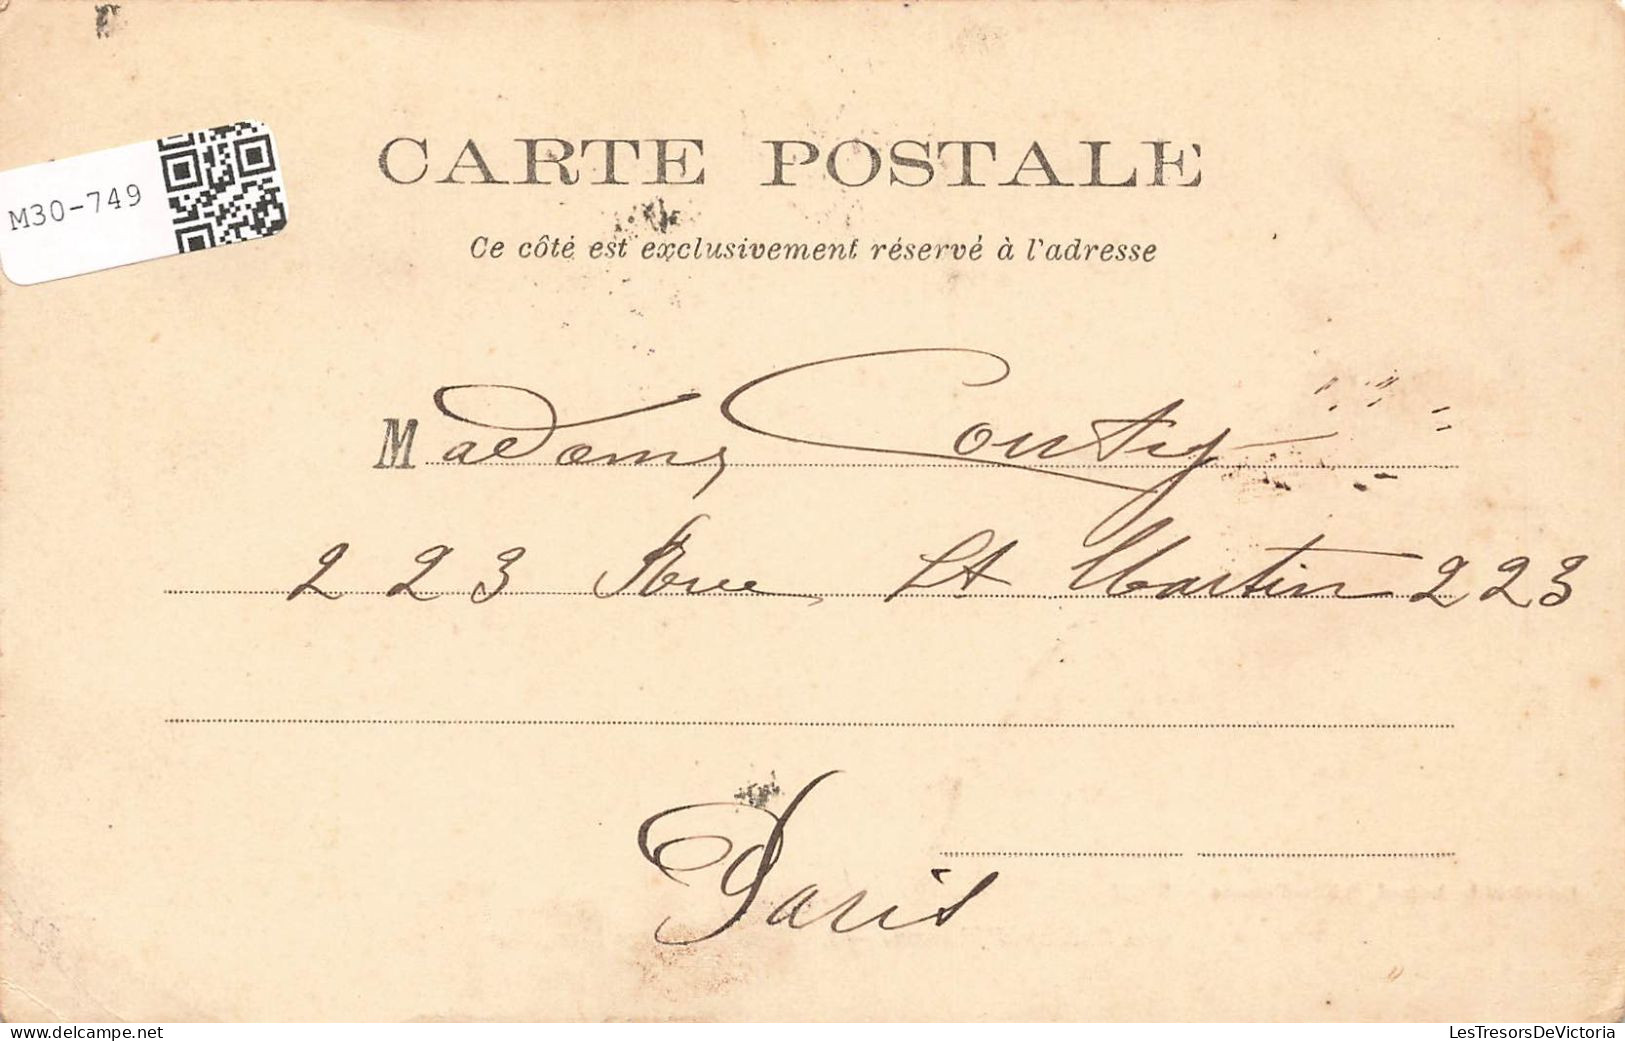 CARTE POSTALE
M30-749
Ce côté est exclusivement réservé à l'adresse
Madame Couty
223 Rue St Martin 223
Paris
www.delcampe.net
LesTresorsDeVictoria